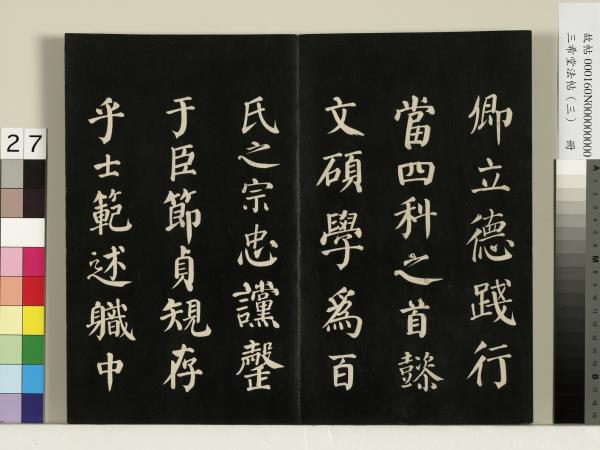 卿立德踐行
當四科之首懿
文碩學爲百
氏之宗忠讜罄
于臣節貞䂓存
乎士範述軄中
故帖 000160N000000000
三希堂法帖（三） 冊
27